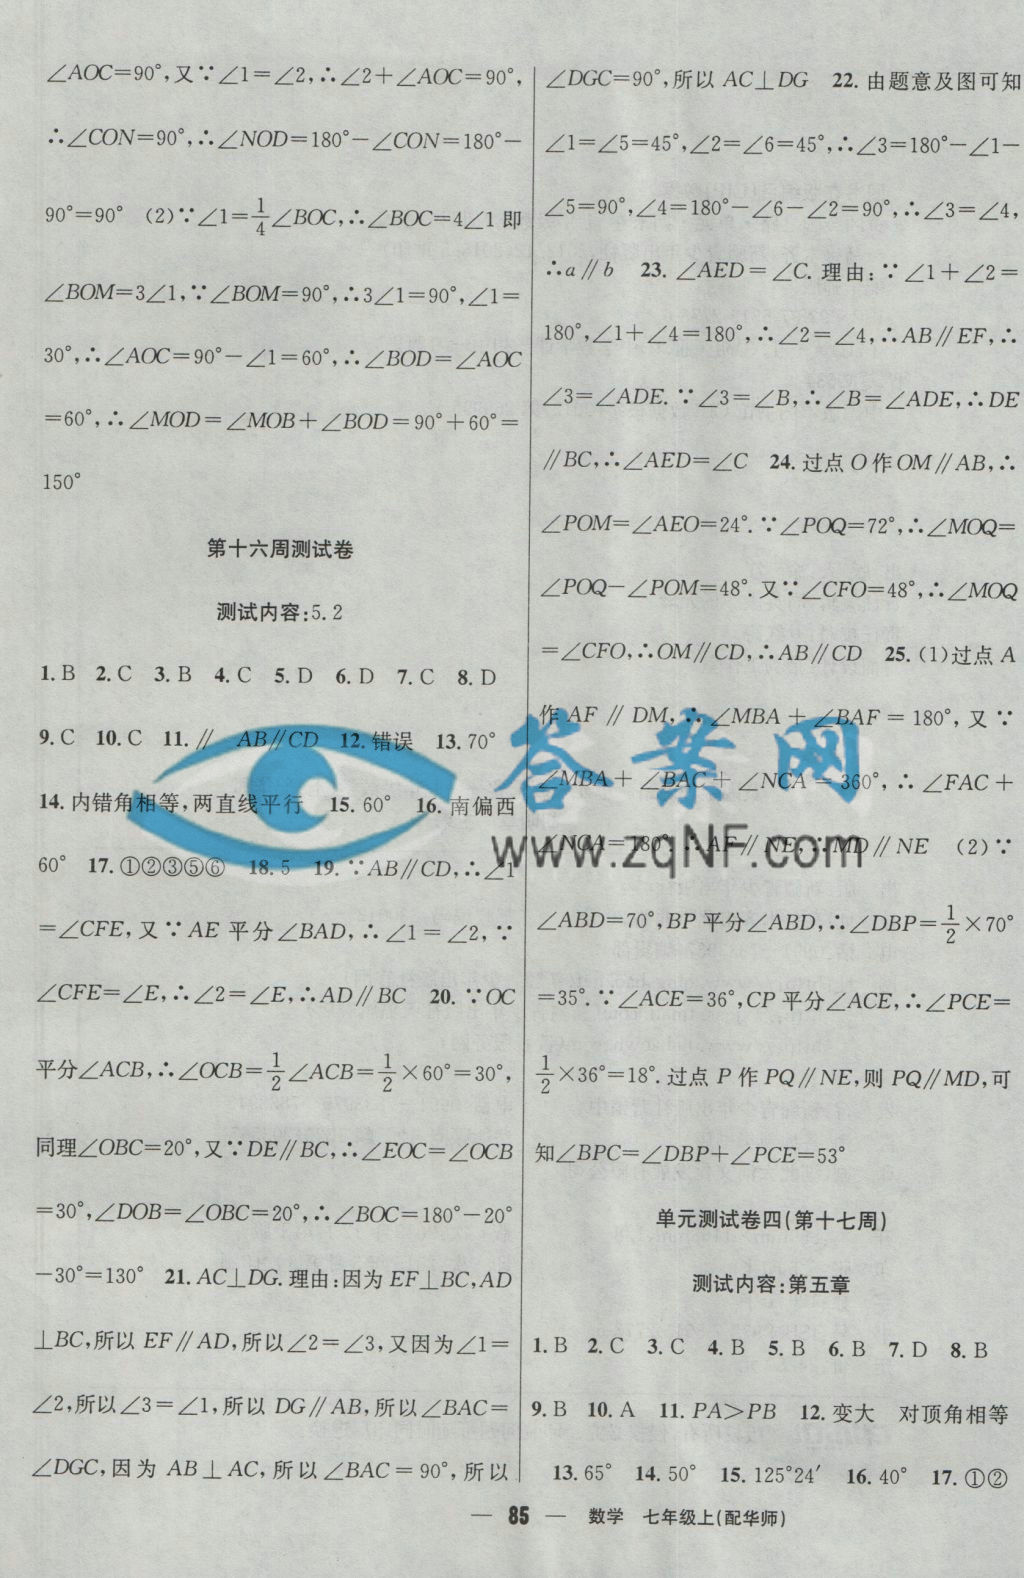 ∠AOC=90°,又∵∠1=∠2,∴∠2+∠AOC=90°,
∴∠CON=90°,∴∠NOD=180°-∠CON=180°-
90°=90° (2)∵∠1=1/4∠BOC,∴∠BOC=4∠1 即
∠BOM=3∠1,∵∠BOM=90°,∴3∠1=90°,∠1=
30°,∴∠AOC=90°-∠1=60°,∴∠BOD=∠AOC
=60°,∴∠MOD=∠MOB+∠BOD=90°+60°=
150°
第十六周测试卷
测试内容:5.2
1. B 2. C 3. B 4. C 5. D 6. D 7. C 8. D
9. C 10. C 11. ∥ AB∥CD 12. 错误 13. 70°
14. 内错角相等,两直线平行 15. 60° 16. 南偏西
60° 17. ①②③⑤⑥ 18. 5 19. ∵AB∥CD,∴∠1
=∠CFE,又∵AE 平分∠BAD,∴∠1=∠2,∵
∠CFE=∠E,∴∠2=∠E,∴AD∥BC 20. ∵OC
平分∠ACB,∴∠OCB=1/2∠ACB=1/2×60°=30°,
同理∠OBC=20°,又∵DE∥BC,∴∠EOC=∠OCB
=30°,∠DOB=∠OBC=20°,∴∠BOC=180°-20°
-30°=130° 21. AC⊥DG. 理由:因为 EF⊥BC,AD
⊥BC,所以 EF∥AD,所以∠2=∠3,又因为∠1=
∠2,所以∠3=∠1,所以 DG∥AB,所以∠BAC=
∠DGC,因为 AB⊥AC,所以∠BAC=90°,所以
∠DGC=90°,所以 AC⊥DG 22. 由题意及图可知
∠1=∠5=45°,∠2=∠6=45°,∴∠3=180°-∠1-
∠5=90°,∠4=180°-∠6-∠2=90°,∴∠3=∠4,
∴a∥b 23. ∠AED=∠C. 理由:∵∠1+∠2=
180°,∠1+∠4=180°,∴∠2=∠4,∴AB∥EF,∴
∠3=∠ADE. ∵∠3=∠B,∴∠B=∠ADE,∴DE
∥BC,∴∠AED=∠C 24. 过点 O 作 OM∥AB,∴
∠POM=∠AEO=24°. ∵∠POQ=72°,∴∠MOQ=
∠POQ-∠POM=48°. 又∵∠CFO=48°,∴∠MOQ
=∠CFO,∴OM∥CD,∴AB∥CD 25. (1)过点 A
作 AF∥DM,∴∠MBA+∠BAF=180°,又∵
∠MBA+∠BAC+∠NCA=360°,∴∠FAC+
∠NCA=180°,∴AF∥NE,∴MD∥NE (2)∵
∠ABD=70°,BP 平分∠ABD,∴∠DBP=1/2×70°
=35°. ∵∠ACE=36°,CP 平分∠ACE,∴∠PCE=
1/2×36°=18°. 过点 P 作 PQ∥NE,则 PQ∥MD,可
知∠BPC=∠DBP+∠PCE=53°
单元测试卷四(第十七周)
测试内容:第五章
1. B 2. C 3. C 4. B 5. B 6. B 7. D 8. B
9. B 10. A 11. PA>PB 12. 变大 对顶角相等
13. 65° 14. 50° 15. 125°24′ 16. 40° 17. ①②
— 85 — 数学 七年级上(配华师)
答案网
www.zqNF.com